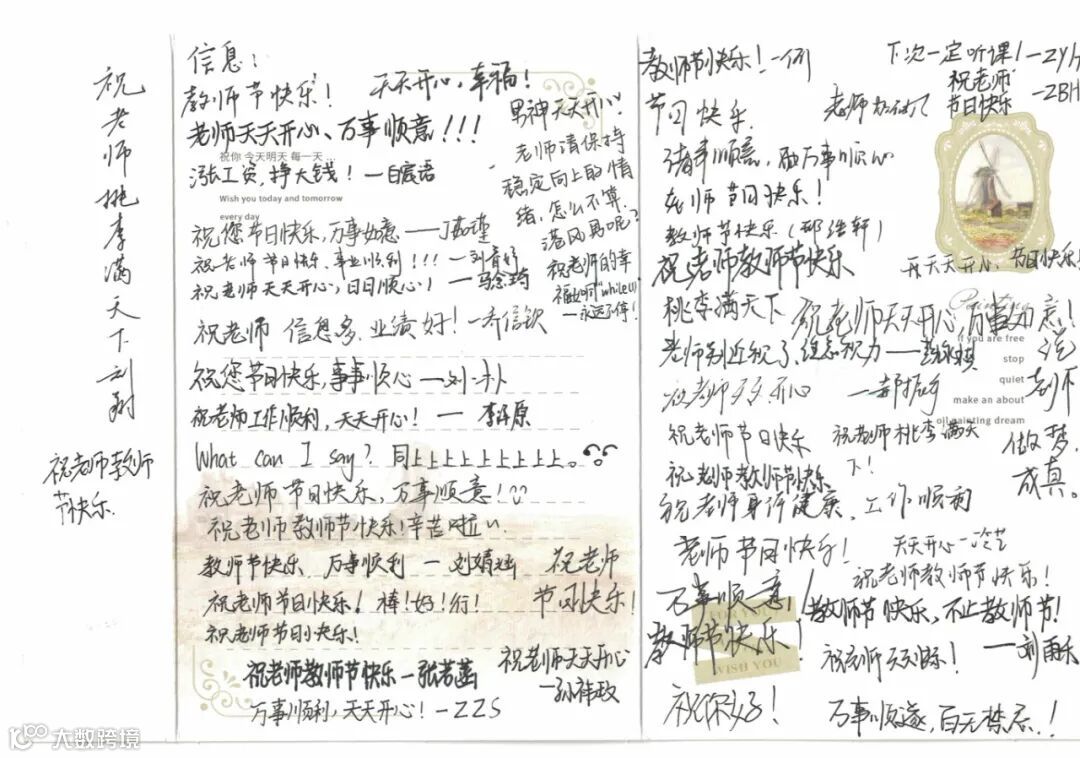 祝老师桃李满天下 刘翔
祝老师教师
节快乐.
信息:
教师节快乐! 天天开心,幸福!
老师天天开心、万事顺意!!!
祝你 今天明天 每一天 ...
涨工资,挣大钱! —白宸语
Wish you today and tomorrow
every day
祝您节日快乐,万事如意
祝老师节日快乐、事业顺利!!!
祝老师天天开心,日日顺心!
祝老师 信息多,业绩好! —乔信钦
祝您节日快乐,事事顺心 —刘
祝老师工作顺利,天天开心! —李
What can I say? 同上上上上上上上上上。
祝老师节日快乐,万事顺意!
祝老师教师节快乐!辛苦啦
教师节快乐 万事顺利 —刘婧涵
祝老师节日快乐!棒!好!行!
祝老师节日快乐!
祝老师教师节快乐 —张若菡
万事顺利,天天开心! —ZZS
男神天天开心!
老师请保持
稳定向上的情
绪,怎么不算
港风男呢?
祝老师的幸
福如同"while(1)
—永远不停!
祝老师
节日快乐!
祝老师天天开心
—孙祎政
教师节快乐!
下次一定听课!—ZYH
祝老师
节日快乐 —ZBH
节日快乐
老师
诸事顺意,万事顺心
老师节日快乐!
教师节快乐
祝老师教师节快乐
天天开心 节日快乐!
桃李满天下
祝老师天天开心,万事如意!
Painting
if you are free
stop
quiet
make an about
oil painting dream
老师别
祝老师天天开心
祝老师节日快乐
祝老师桃李满天
下!
做梦
成真。
祝老师教师节快乐
祝老师身体健康,工作顺利
老师节日快乐!
天天开心
祝老师教师节快乐!
万事顺意!
教师节快乐,不止教师节!
FOR YOU
WISH YOU
教师节快乐!
祝老师天天快乐! —刘雨禾
祝你好!
万事顺遂,百无禁忌!
大数跨境